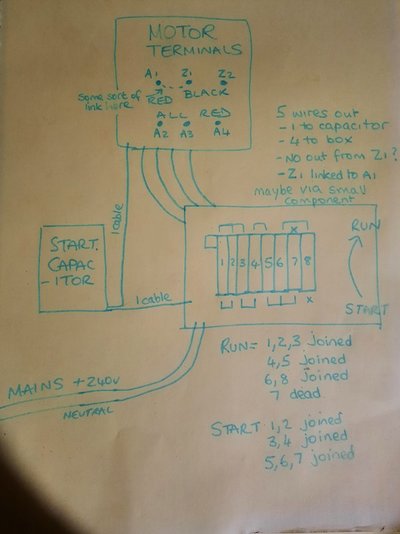 MOTOR
TERMINALS
A1 Z1 Z2
some sort of
link here
RED BLACK
ALL RED
A2 A3 A4
5 wires out
- 1 to capacitor
- 4 to box
- No out from Z1?
- Z1 linked to A1
maybe via small
component
1 cable
START.
CAPAC
-ITOR
1 cable
x
1 2 3 4 5 6 7 8
x
RUN
START
MAINS + 240v
NEUTRAL
RUN = 1,2,3 joined
4,5 joined
6,8 joined
7 dead
START 1,2 joined
3,4 joined
5,6,7 joined